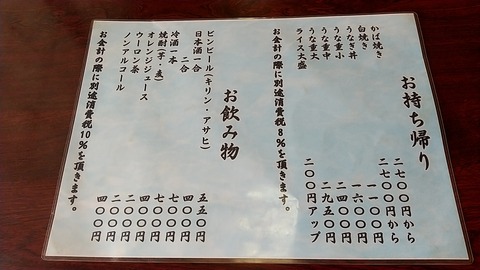 お持ち帰り
かば焼き 二七〇〇円から
白焼き 二七〇〇円から
うなぎ丼 一一〇〇円
うな重小 一六〇〇円
うな重中 二四〇〇円
うな重大 二九五〇円
ライス大盛 二〇〇円アップ
お会計の際に別途消費税8%を頂きます。
お飲み物
ビンビール(キリン・アサヒ) 五五〇円
日本酒一合 四〇〇円
二合 七〇〇円
冷酒一本 七〇〇円
焼酎(芋・麦) 四〇〇円
オレンジジュース 二〇〇円
ウーロン茶 二〇〇円
ノンアルコール 四〇〇円
お会計の際に別途消費税10%を頂きます。